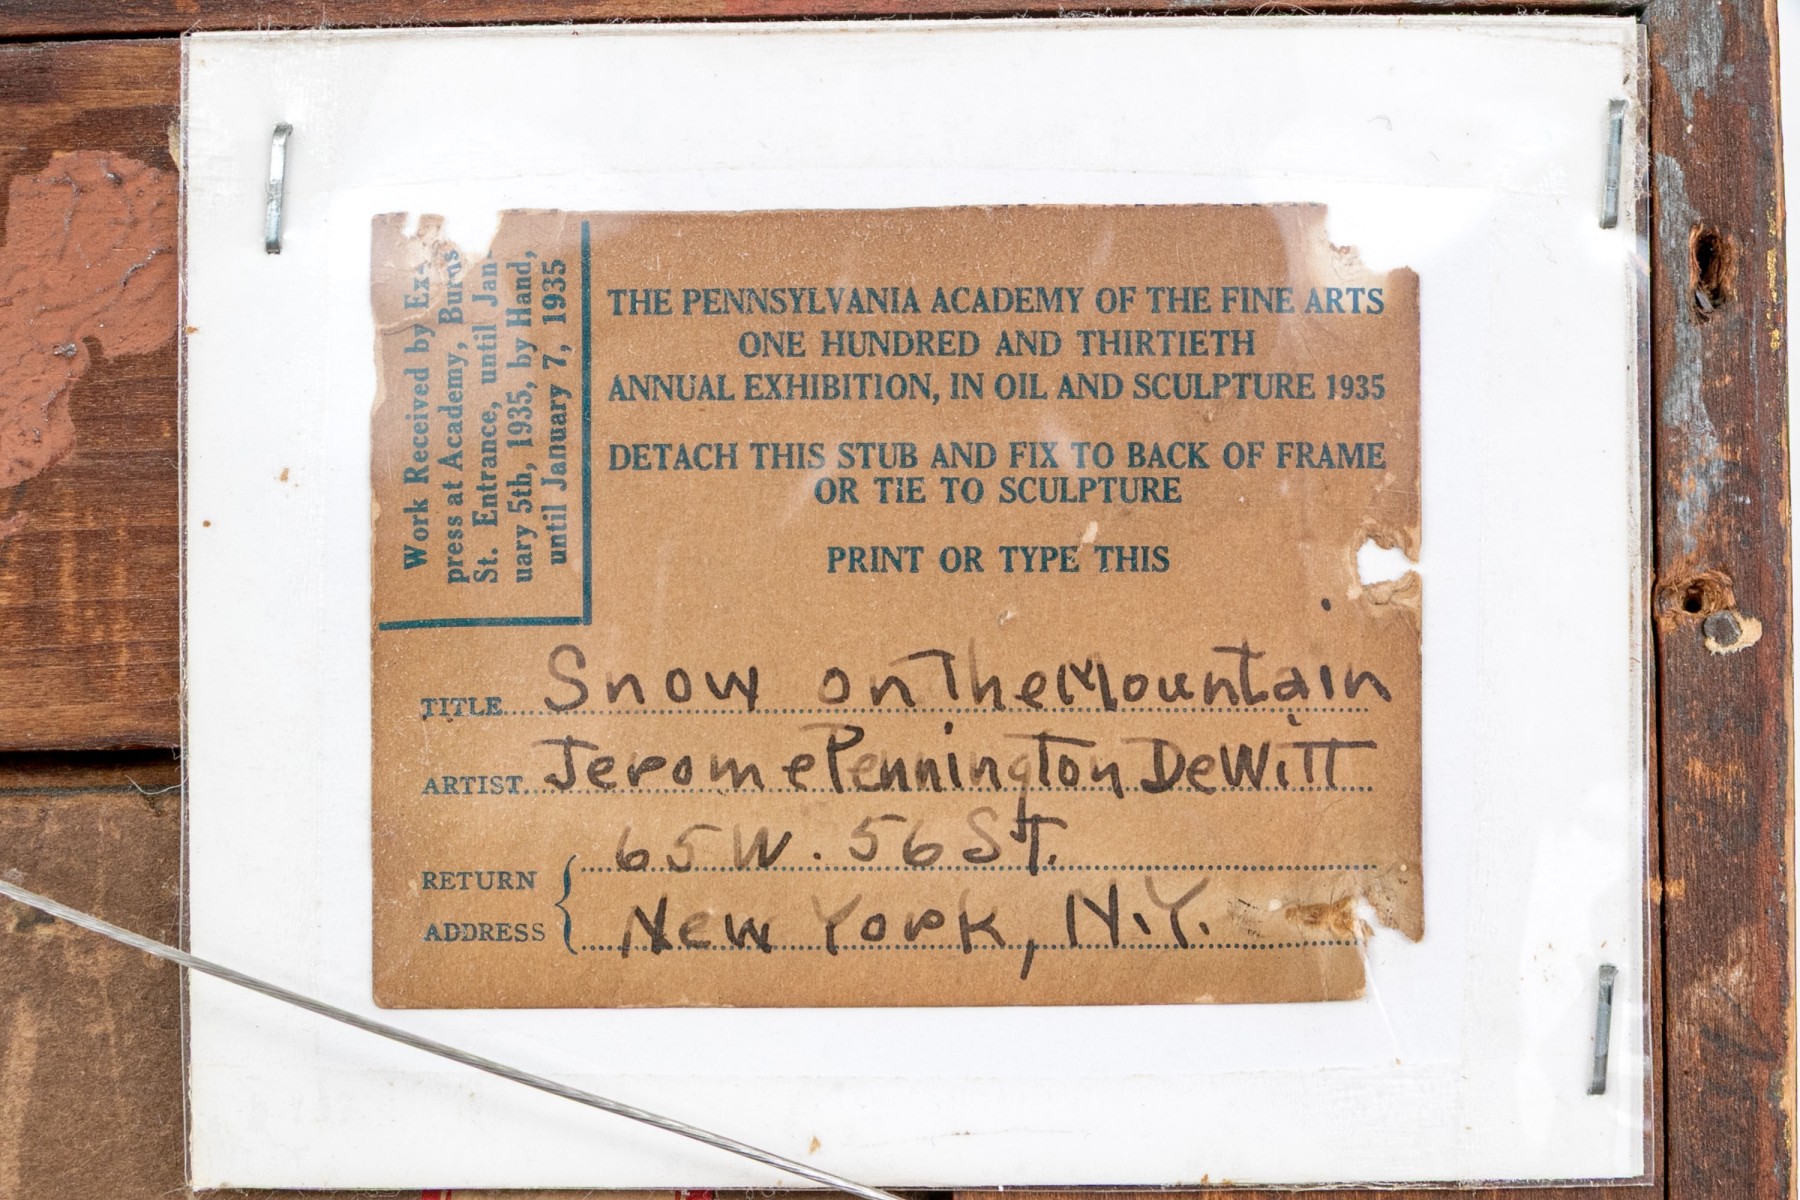 Work Received by Ex-
press at Academy, Burns
St. Entrance, until Jan-
uary 5th, 1935, by Hand,
until January 7, 1935
THE PENNSYLVANIA ACADEMY OF THE FINE ARTS
ONE HUNDRED AND THIRTIETH
ANNUAL EXHIBITION, IN OIL AND SCULPTURE 1935
DETACH THIS STUB AND FIX TO BACK OF FRAME
OR TIE TO SCULPTURE
PRINT OR TYPE THIS
TITLE Snow on The Mountain
ARTIST Jerome Pennington DeWitt
65 W. 56 St.
RETURN
ADDRESS New York, N.Y.